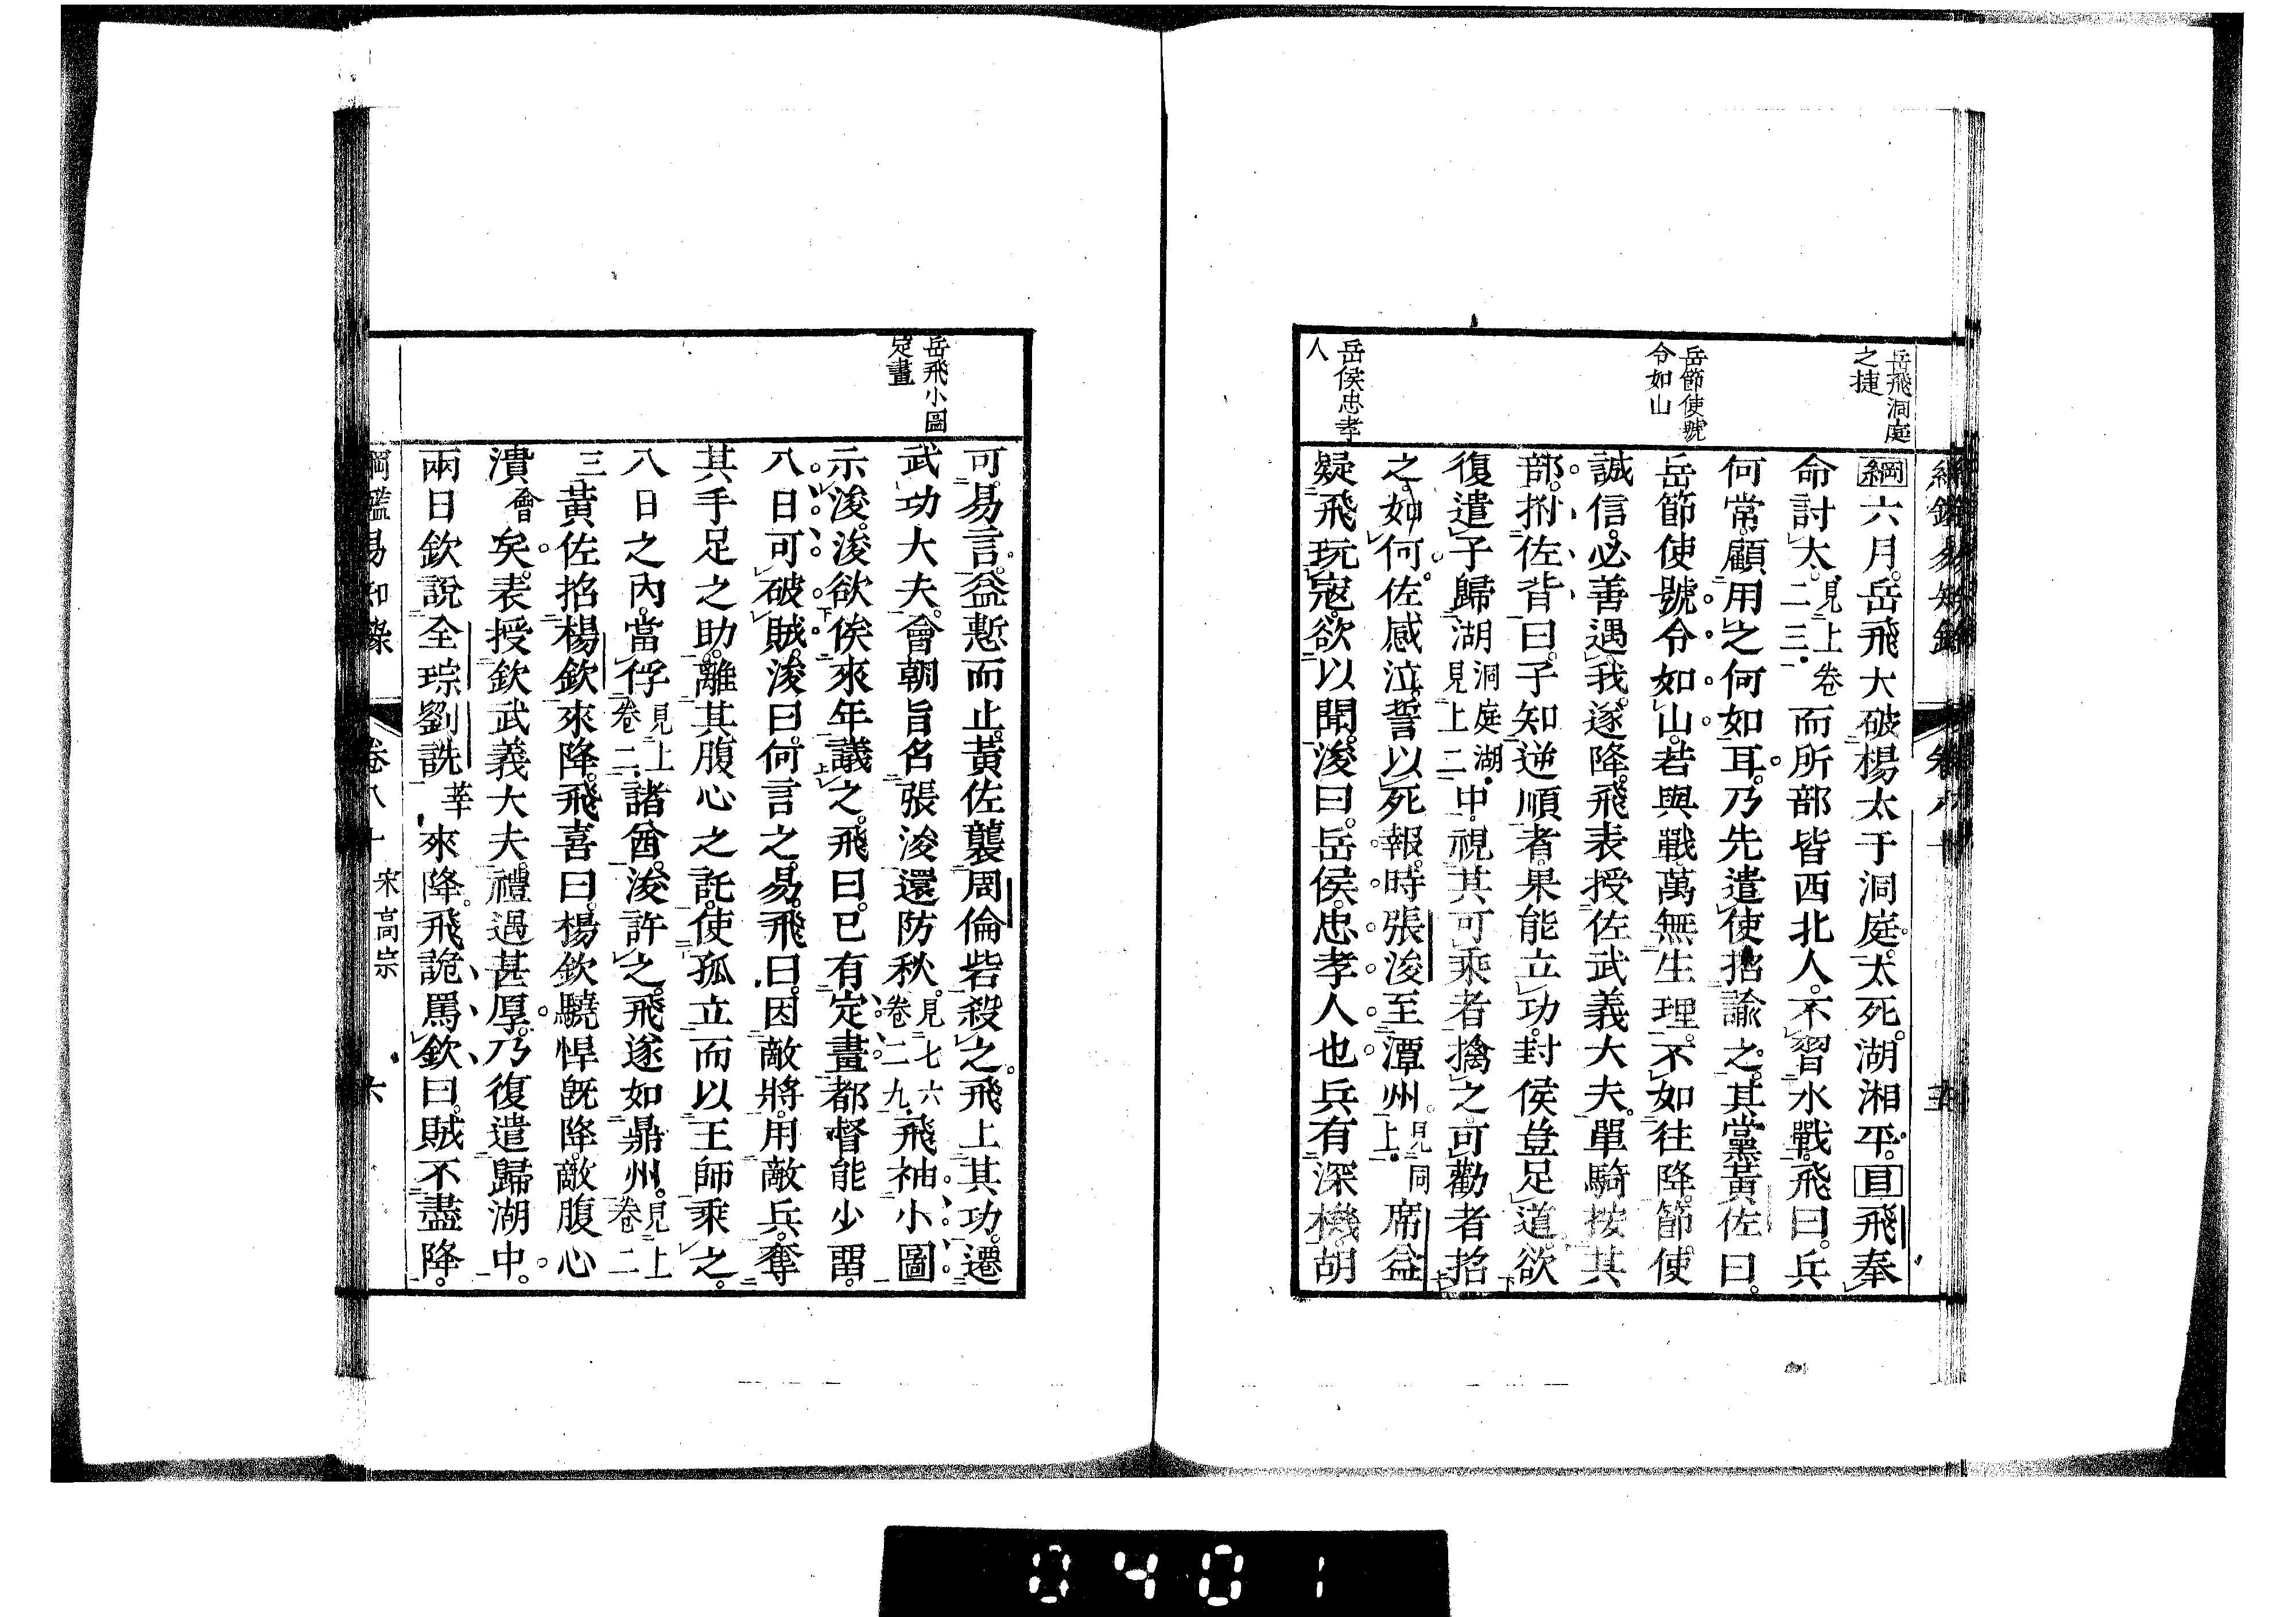 岳飛洞庭
之捷
岳節使號
令如山
岳侯忠孝
人
綱六月。岳飛大破楊太于洞庭。太死。湖湘平。目飛奉
命討太。見上卷二三而所部皆西北人。不習水戰。飛曰。兵
何常。顧用之何如耳。乃先遣使招諭之。其黨黃佐曰。
岳節使號令如山。若與戰萬無生理。不如往降。節使
誠信。必善遇我。遂降。飛表授佐武義大夫。單騎按其
部。拊佐背曰。子知逆順者。果能立功。封侯豈足道。欲
復遣子歸湖洞庭湖見上二中。視其可乘者擒之。可勸者招
之。如何。佐感泣。誓以死報。時張浚至潭州。見同上席益
疑飛玩寇。欲以聞。浚曰。岳侯。忠孝人也。兵有深機。胡
岳飛小圖
定畫
可易言。益慙而止。黃佐襲周倫砦殺之。飛上其功。遷
武功大夫。會朝旨名張浚還防秋。見七六卷二九飛袖小圖
示浚。浚欲俟來年議之。飛曰。已有定畫。都督能少畱。
八日可破賊。浚曰。何言之易。飛曰。因敵將。用敵兵。奪
其手足之助。離其腹心之託。使孤立而以王師乘之。
八日之內。當俘見上卷二諸酋。浚許之。飛遂如鼎州。見上卷二
三黃佐招楊欽來降。飛喜曰。楊欽驍悍旣降。敵腹心
潰會矣。表授欽武義大夫。禮遇甚厚。乃復遣歸湖中。
兩日欽說全琮劉詵莘來降。飛詭罵欽曰。賊不盡降。
綱鑑易知錄
卷八十
宋高宗
六
0401